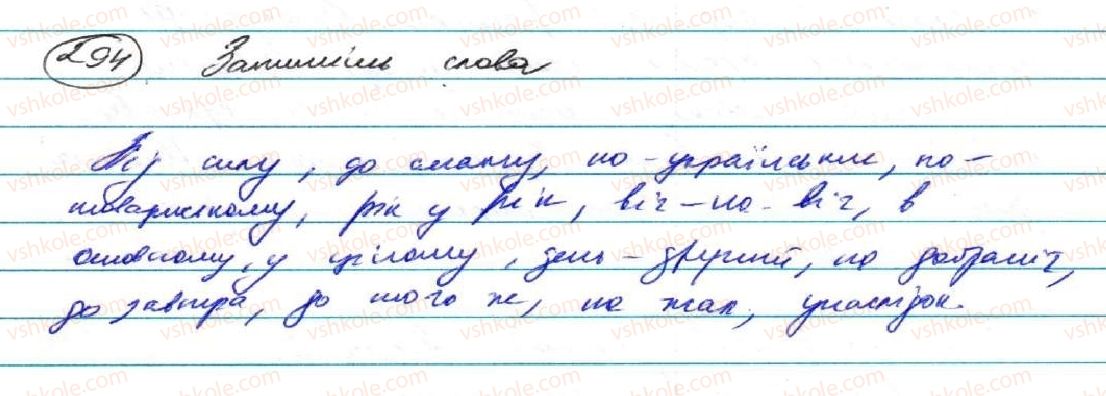 294 Запишіть слова
Під силу, до смаку, по-українськи, по-
товариському, рік у рік, віч-на-віч, в
основному, у цілому, день-другий, на добраніч,
до завтра, до того ж, на жаль, унаслідок.